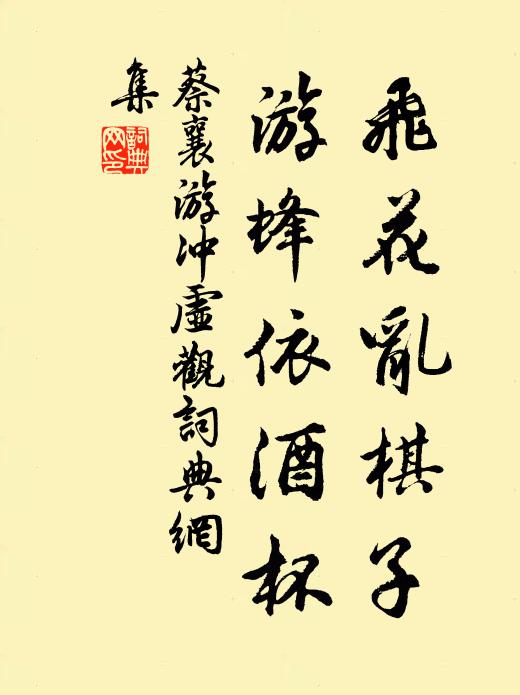 飛花亂棋子
游蜂依酒杯
蔡襄游冲虛觀詞典網
集
詞典網印